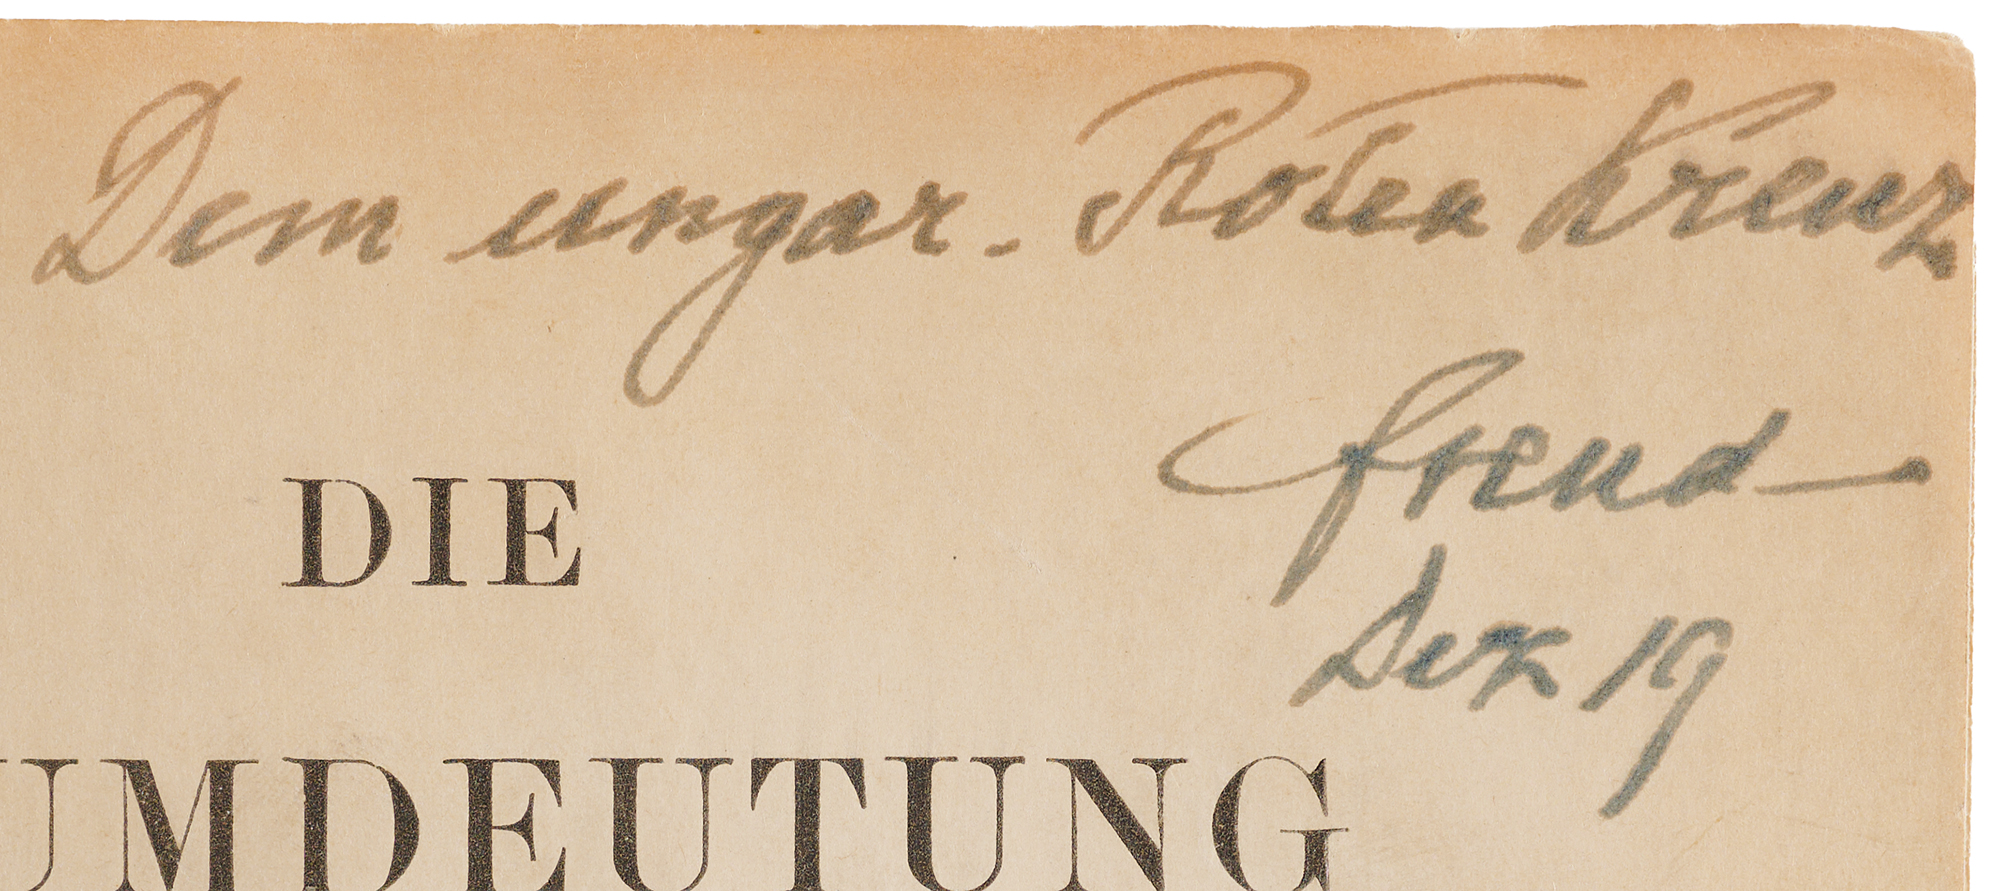 Dem ungar. Roten Kreuz
Freud
Dez 19
DIE
UMDEUTUNG